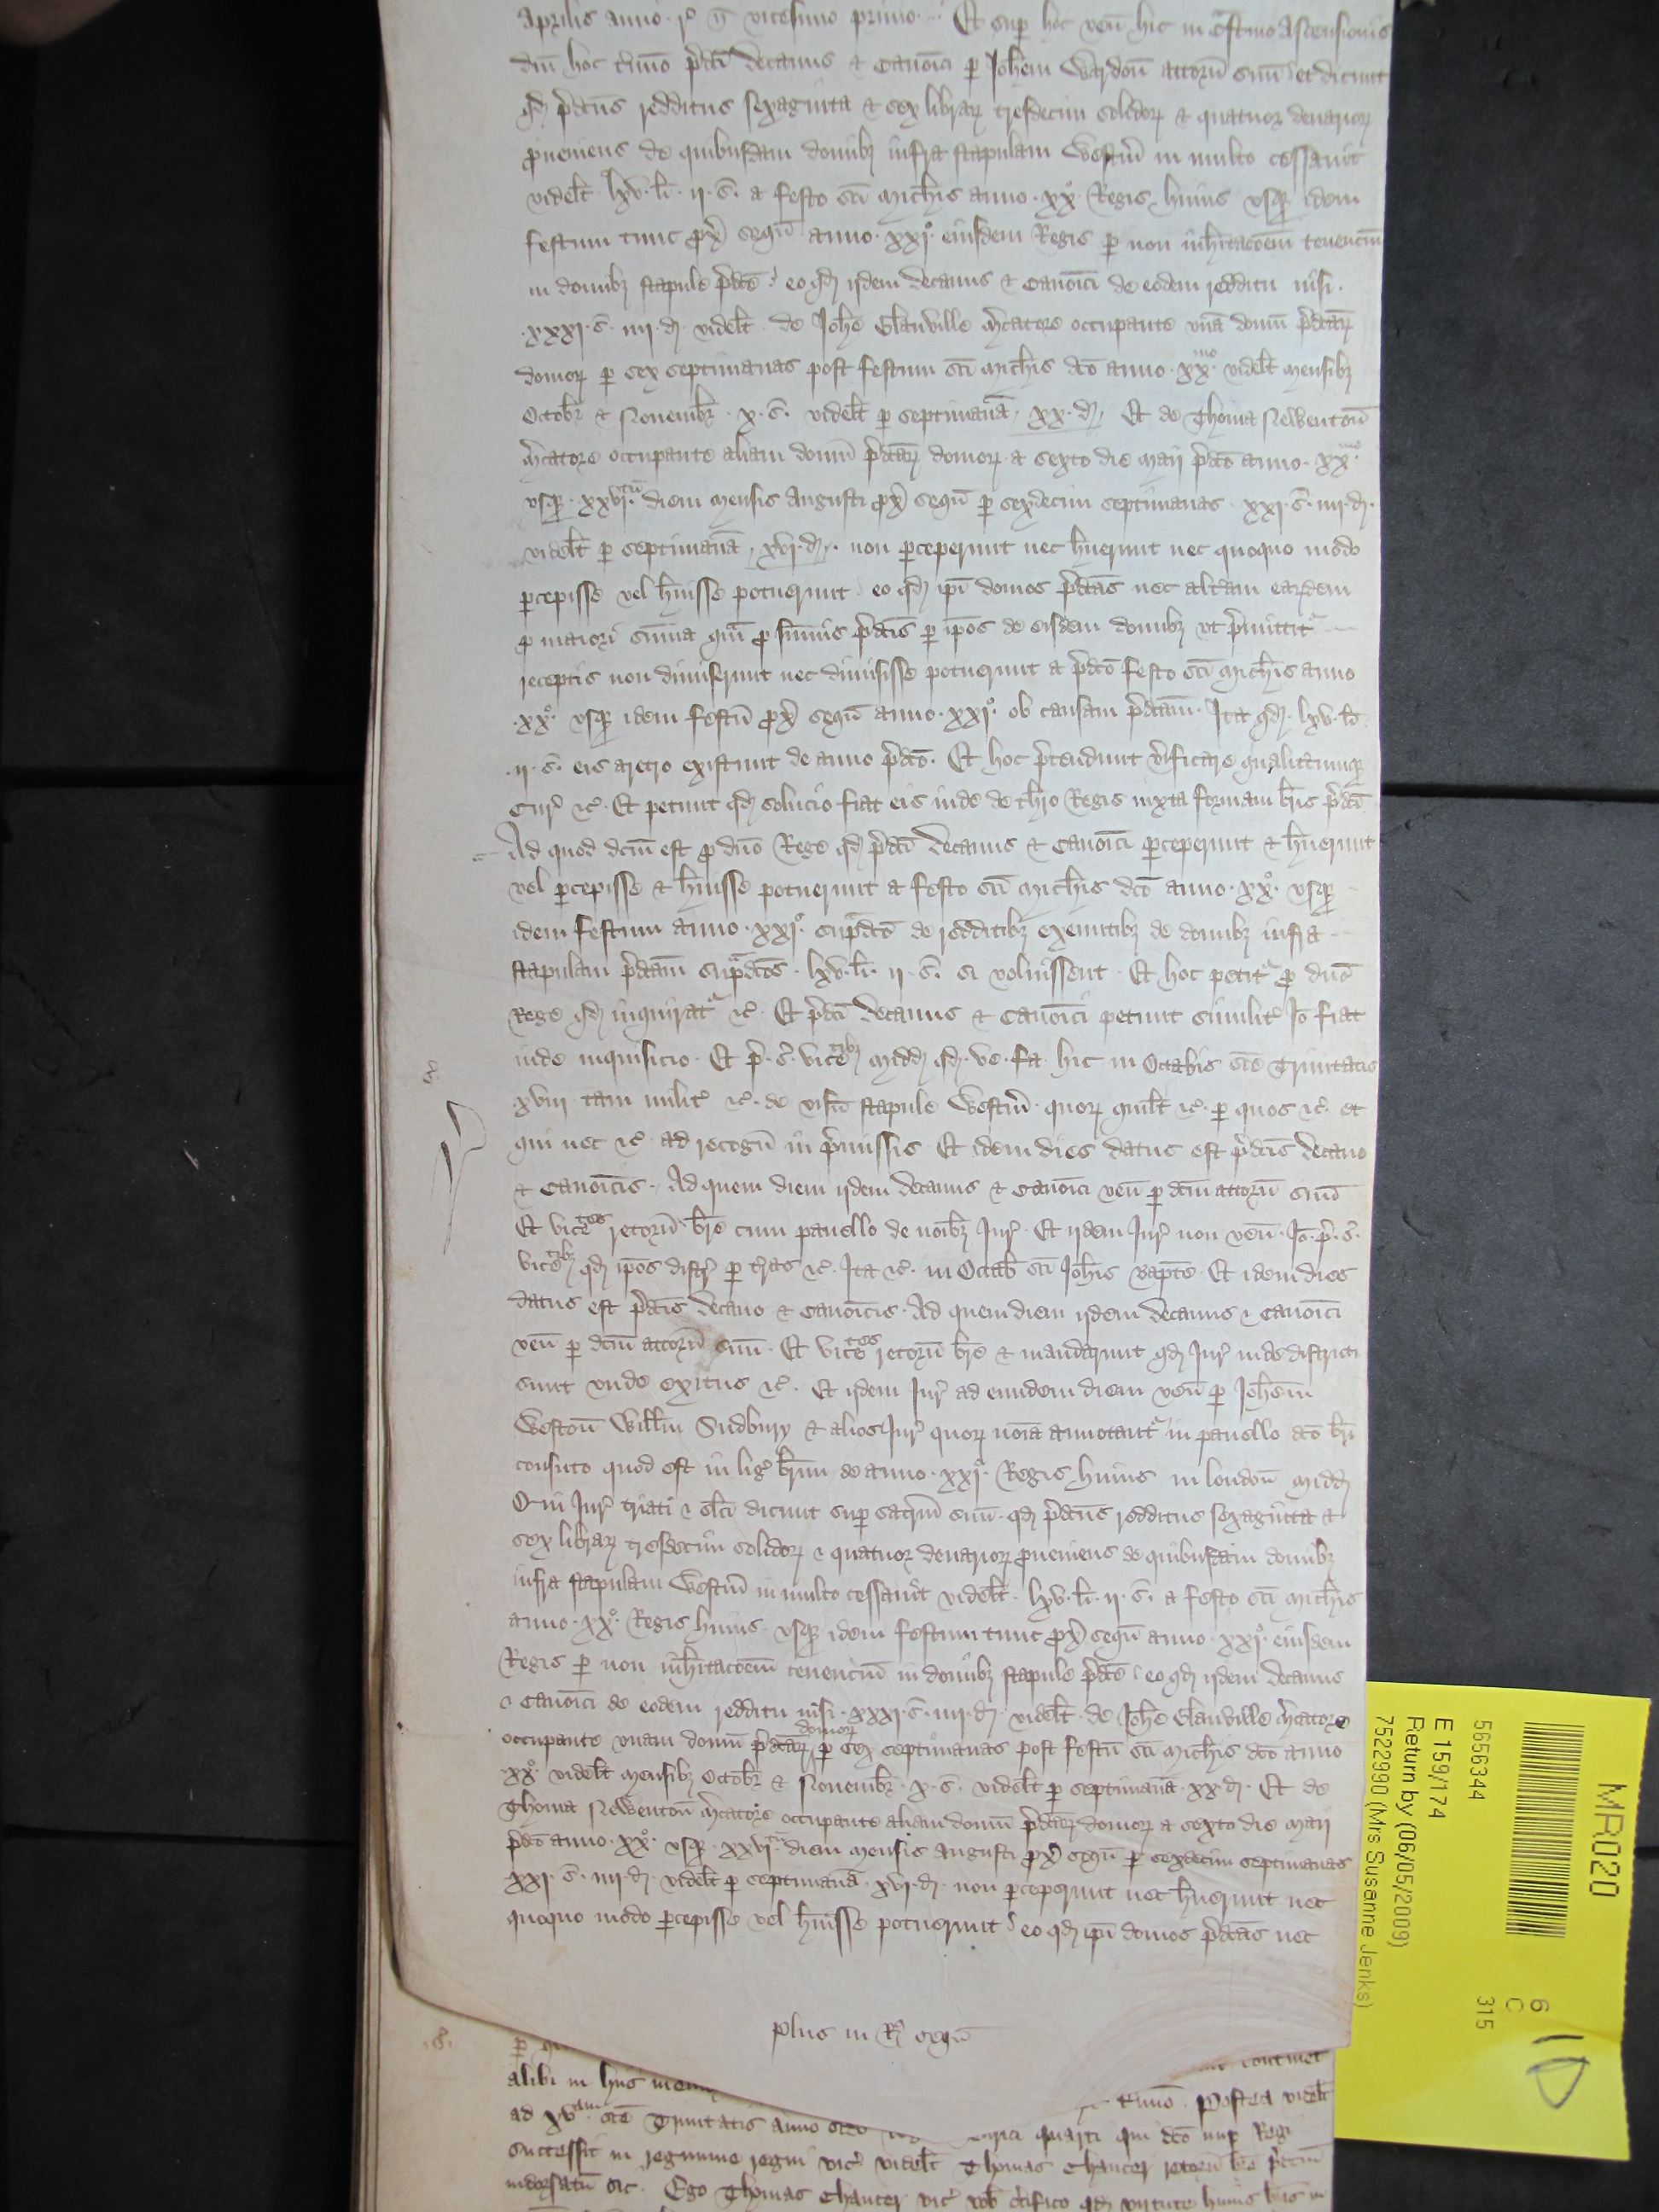 Aprilis anno r̄ R̄ vicesimo primo. Et sup hoc ven̄ hic in c̃stino Ascensionis
dn̄i hoc t̄mino p̄dc̄i Decanus & Canoīci p Joh̄em Wardon̄ attorn̄ suū et dicunt
qd̄ p̄dc̄us redditus sexaginta & sex librar̄ tresdecim solidor̄ & quatuor denarior̄
p̄ueniens de quibusdam domib3 infra stapulam Westm̄ in multo cessauit
videlt lxv. li. ij. s̄. a festo sc̄i Mich̄is anno xx̊ Regis huius vsq3 idem
festum tunc px̄ seqū anno xxj̊ eiusdem Regis p non inh̄itac̄oem tenenciū
in domib3 stapule p̄dc̄e eo qd̄ ijdem Decanus & Canoīci de eodem redditu nisi
xxxj. s̄. iiij. d. videlt de Joh̄e Glanville m̄catore occupante vnā domū p̄dc̄ar̄
domor̄ p sex septimanas post festum sc̄i Mich̄is dc̄o anno xx^mo videlt mensib3
Octob̄r & Nouemb̄r x. s̄. videlt p septimanā xx. d. Et de Thoma Newenton̄
m̄catore occupante aliam domū p̄dc̄ar̄ domor̄ a sexto die Maij p̄dc̄o anno xx^mo
vsq3 xxvj^tū diem mensis Augusti px̄ seqū p sexdecim septimanas xxj. s̄. iiij. d.
videlt p septimanā xvj. d. non pceperunt nec h̄uerunt nec quoquo modo
pcepisse vel h̄uisse potuerunt eo qd̄ ip̄i domos p̄dc̄as nec alt̄am eardem
p maiori sum̄a qm̄ p sum̄is p̄dc̄is p ip̄os de eisdem domib3 vt p̄mittit^r
receptis non dimiserunt nec dimisisse potuerunt a p̄dc̄o festo sc̄i Mich̄is anno
xx̊ vsq3 idem festū px̄ seqū anno xxj̊ ob causam p̄dc̄am. Ita qd̄ lxv. li.
ij. s̄. eis aretro existunt de anno p̄dc̄o. Et hoc p̄tendunt v̄ificare qualitcumq3
Cur̄ &c̄. Et petunt qd̄ solucio fiat eis inde de th̄ro Regis iuxta formam br̄is p̄dc̄i
Ad quod dc̄m est p dn̄o Rege qd̄ p̄dc̄i Decanus & Canoīci pceperunt & h̄uerunt
vel pcepisse & h̄uisse potuerunt a festo sc̄i Mich̄is dc̄o anno xx̊ vsq3
idem festum anno xxj̊ sup^adc̄o de redditib3 exeuntib3 de domib3 infra
stapulam p̄dc̄am sup^adc̄os lxv. li. ij. s̄. si voluissent. Et hoc petit^r p dn̄o
Rege qd̄ inquirat^r &c̄. Et p̄dc̄i Decanus & Canoīci petunt similit̄ Jō fiat
inde inquisicio. Et p̄. s̄. vice^tib3 Midd̄ qd̄. ve. fa. hic in Octabis sc̄e Trinitatis
xviij tam milit̄ &c̄. de visū stapule Westm̄ quor̄ quilt &c̄. p quos &c̄ et
qui nec &c̄ ad recogn̄ in p̄missis. Et idem dies datus est p̄dc̄is Decano
& Canoīcis. Ad quem diem ijdem Decanus & Canoīci ven̄ p dc̄m attorn̄ suū
Et vice^tes retorn̄ br̄e cum panello de noīb3 Jur̄. Et ijdem Jur̄ non ven̄. Jō. p̄. s̄.
vice^tib3 qd̄ ip̄os distr̄ p t̄ras &c̄. Ita &c̄. in Octab̄ sc̄i Joh̄is Bapt̄e. Et idem dies
datus est p̄dc̄is Decano & Canoīcis. Ad quem diem ijdem Decanus & Canoīci
ven̄ p dc̄m attorn̄ suū. Et vice^tes retorn̄ br̄e & mandarunt qd̄ Jur̄ inde districti
sunt vnde exitus &c̄. Et ijdem Jur̄ ad eundem diem ven̄ p Joh̄em
Weston̄ Will̄m Sudbury & alios Jur̄ quor̄ noīa annotant^r in panello dc̄o br̄i
consuto quod est in liḡ br̄ium de anno xxj̊ Regis huius in london̄ Midd̄
Qui Jur̄ triati & el̄ci dicunt sup sacr̄m suū qd̄ p̄dc̄us redditus sexaginta &
sex librar̄ tresdecim solidor̄ & quatuor denarior̄ p̄ueniens de quibusdam domib3
infra stapulam Westm̄ in multo cessauit videlt lxv. li. ij. s̄. a festo sc̄i Mich̄is
anno xx̊ Regis huius vsq3 idem festum tunc px̄ seqū anno xxj̊ eiusdem
Regis p non inh̄itac̄oem tenenciū in domib3 stapule p̄dc̄e eo qd̄ ijdem Decanus
& Canoīci de eodem redditu nisi xxxj. s̄. iiij. d. videlt de Joh̄e Glanville m̄catore
occupante vnam domū p̄dc̄ar̄ domor̄ p sex septimanas post festū sc̄i Mich̄is dc̄o anno
xx̊ videlt mensib3 Octob̄r & Nouemb̄r x. s̄. videlt p septimanā xx. d. Et de
Thoma Newenton̄ m̄catore occupante aliam domū p̄dc̄ar̄ domor̄ a sexto die Maij
p̄dc̄o anno xx̊ vsq3 xxvj^tū diem mensis Augusti px̄ seqū p sexdecim septimanas
xxj. s̄. iiij. d. videlt p septimanā xvj. d. non pceperunt nec h̄uerunt nec
quoquo modo pcepisse vel h̄uisse potuerunt eo qd̄ ip̄i domos p̄dc̄as nec
plus in R̄o seqū
alibi in hus
Postea videlt
ad xv^am sc̄e Trinitatis anno quarti qui dc̄o nup Regi
successit in regimine regni vic̄ videlt Thomas Chaucer retorn̄ br̄e
indorsatū sic. Ego Thomas Chaucer vic̄ vob̄ c̄tifico qd̄ virtute huius br̄is
MR020
5656344
E 159/174
Return by (06/05/2009)
7522990 (Mrs Susanne Jenks)
6
C
315
10